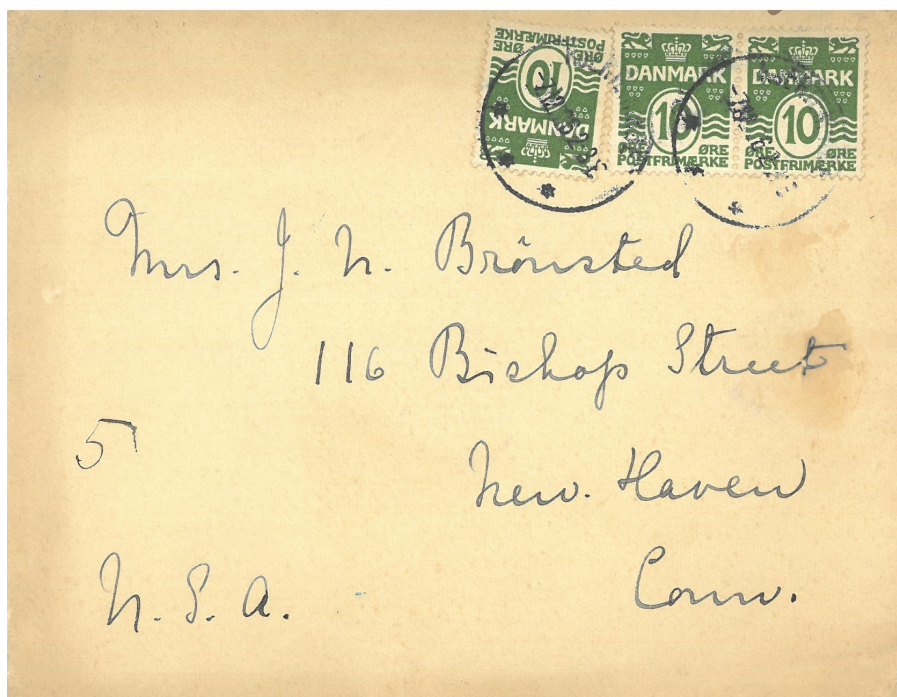 DANMARK
10
ØRE
POSTFRIMÆRKE
DANMARK
10
ØRE ØRE
POSTFRIMÆRKE
DANMARK
10
ØRE
POSTFRIMÆRKE
Mrs. J. N. Brönsted
116 Bishop Street
5
New. Haven
U.S.A.
Conn.